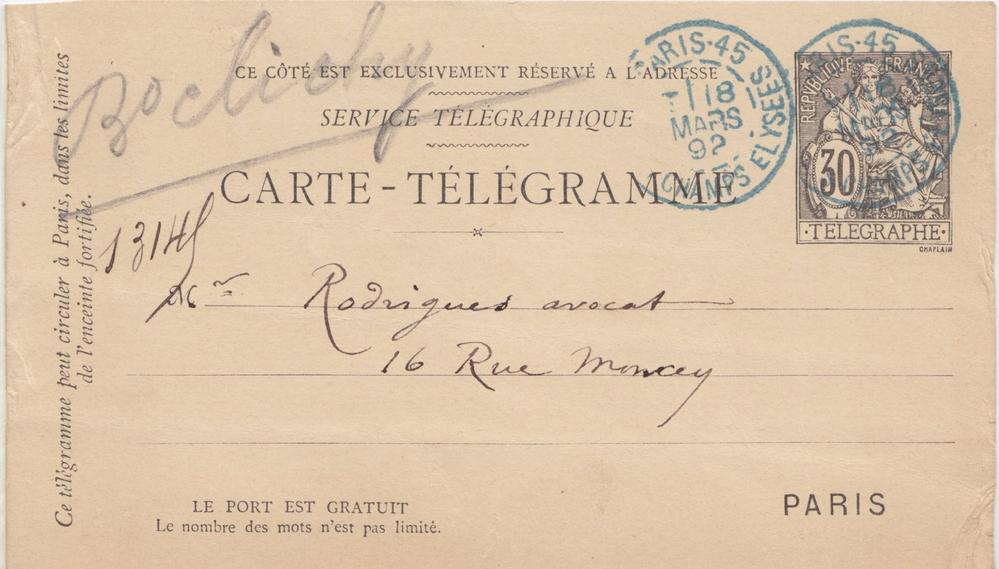 Bd clichy
CE CÔTÉ EST EXCLUSIVEMENT RÉSERVÉ A L'ADRESSE
SERVICE TÉLÉGRAPHIQUE
CARTE-TÉLÉGRAMME
PARIS-45
18
MARS
92
CHAMPS ELYSEES
PARIS-45
MARS
92
REPVBLIQVE FRANC
30
·TELEGRAPHE·
CHAPLAIN
Ce télégramme peut circuler à Paris, dans les limites
de l'enceinte fortifiée.
Mr Rodrigues avocat
16 Rue Moncey
LE PORT EST GRATUIT
Le nombre des mots n'est pas limité.
PARIS